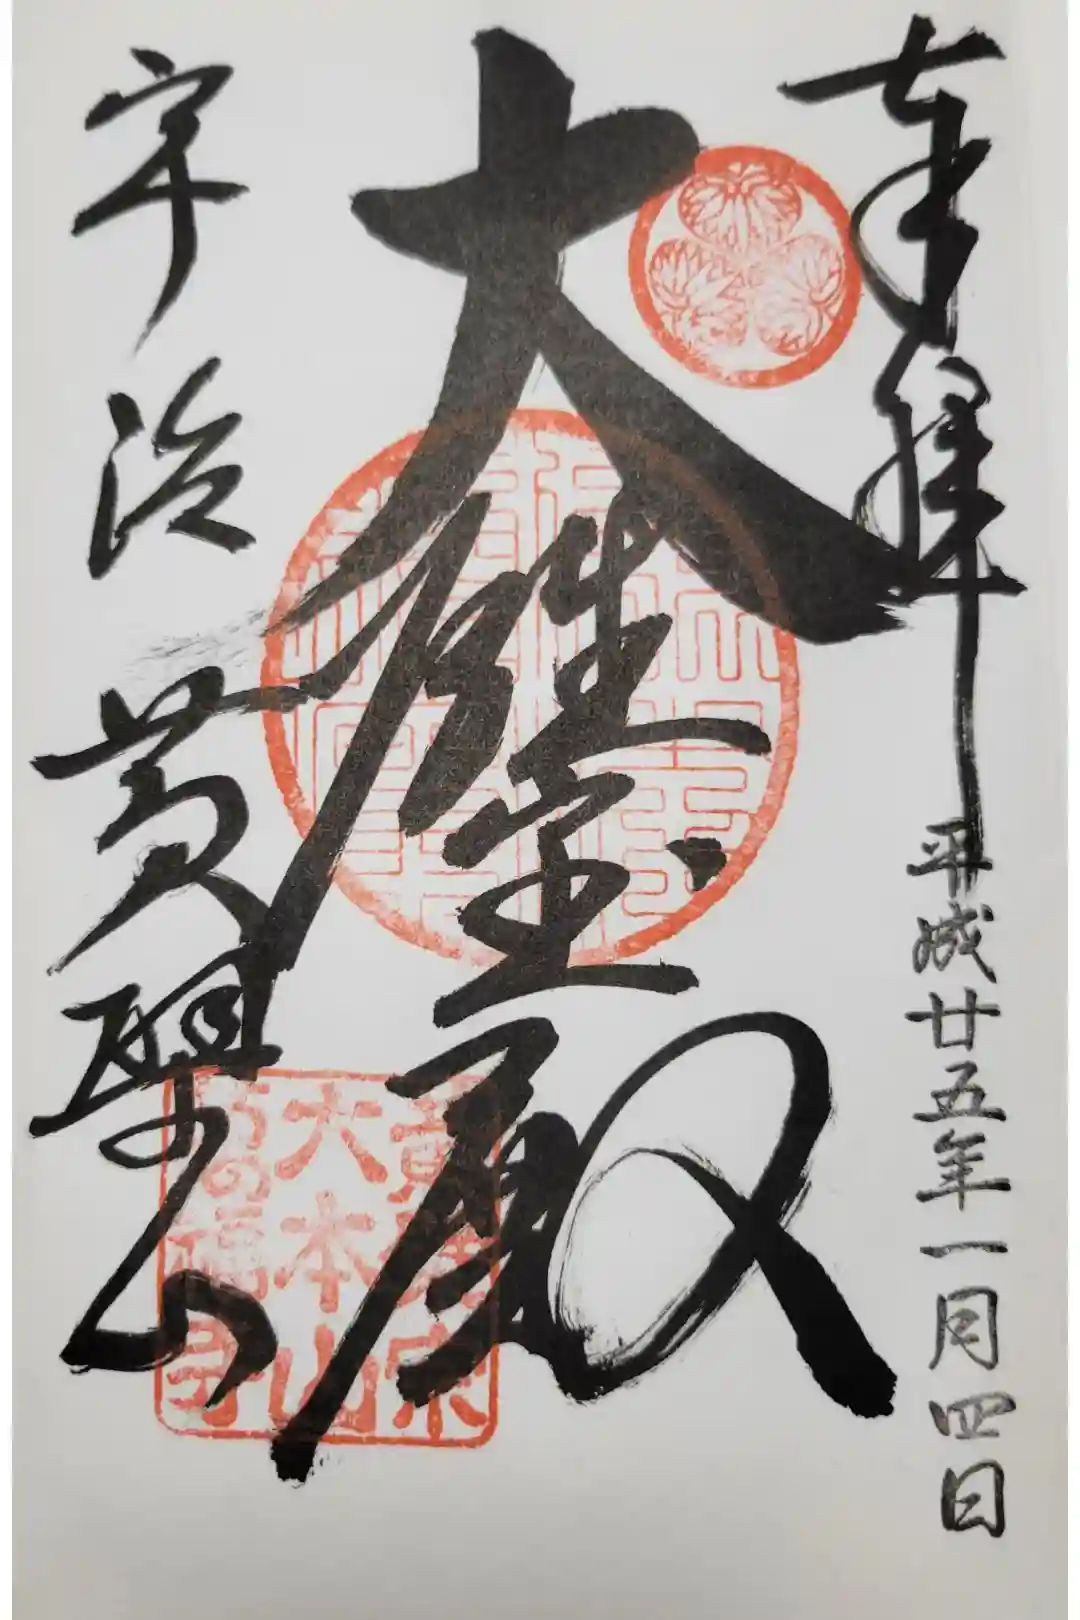 奉拝
平成廿五年一月四日
大雄宝殿
宇治 黄檗山
黄檗宗
大本山
万福寺